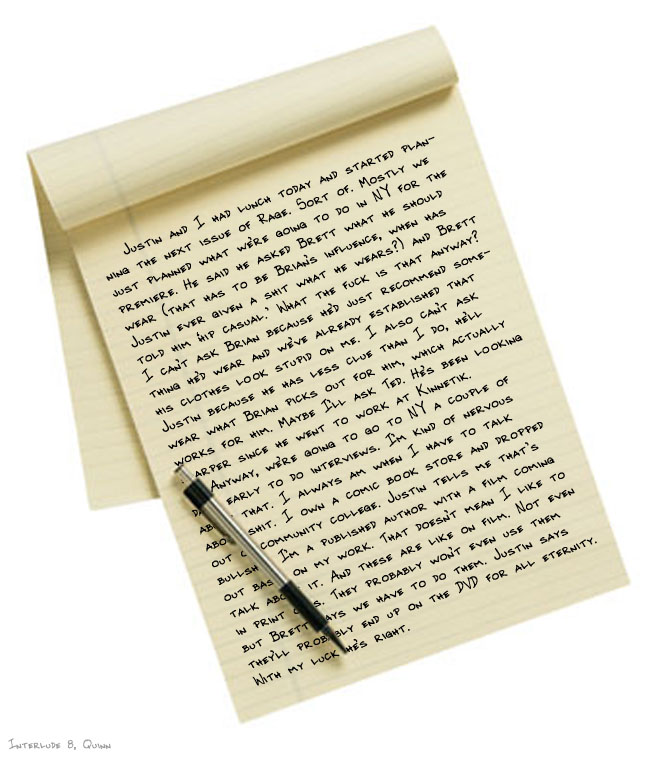 Justin and I had lunch today and started plan-
ning the next issue of Rage. Sort of. Mostly we
just planned what we're going to do in NY for the
premiere. He said he asked Brett what he should
wear (that has to be Brian's influence, when has
Justin ever given a shit what he wears?) and Brett
told him 'hip casual.' What the fuck is that anyway?
I can't ask Brian because he'd just recommend some-
thing he'd wear and we've already established that
his clothes look stupid on me. I also can't ask
Justin because he has less clue than I do, he'll
wear what Brian picks out for him, which actually
works for him. Maybe I'll ask Ted. He's been looking
arper since he went to work at Kinnetik.
Anyway, we're going to go to NY a couple of
early to do interviews. I'm kind of nervous
that. I always am when I have to talk
shit. I own a comic book store and dropped
out community college. Justin tells me that's
bullsh I'm a published author with a film coming
out bas on my work. That doesn't mean I like to
talk abo it. And these are like on film. Not even
in print. They probably won't even use them
but Brett says we have to do them. Justin says
they'll probably end up on the DVD for all eternity.
With my luck he's right.
Interlude 8, Quinn